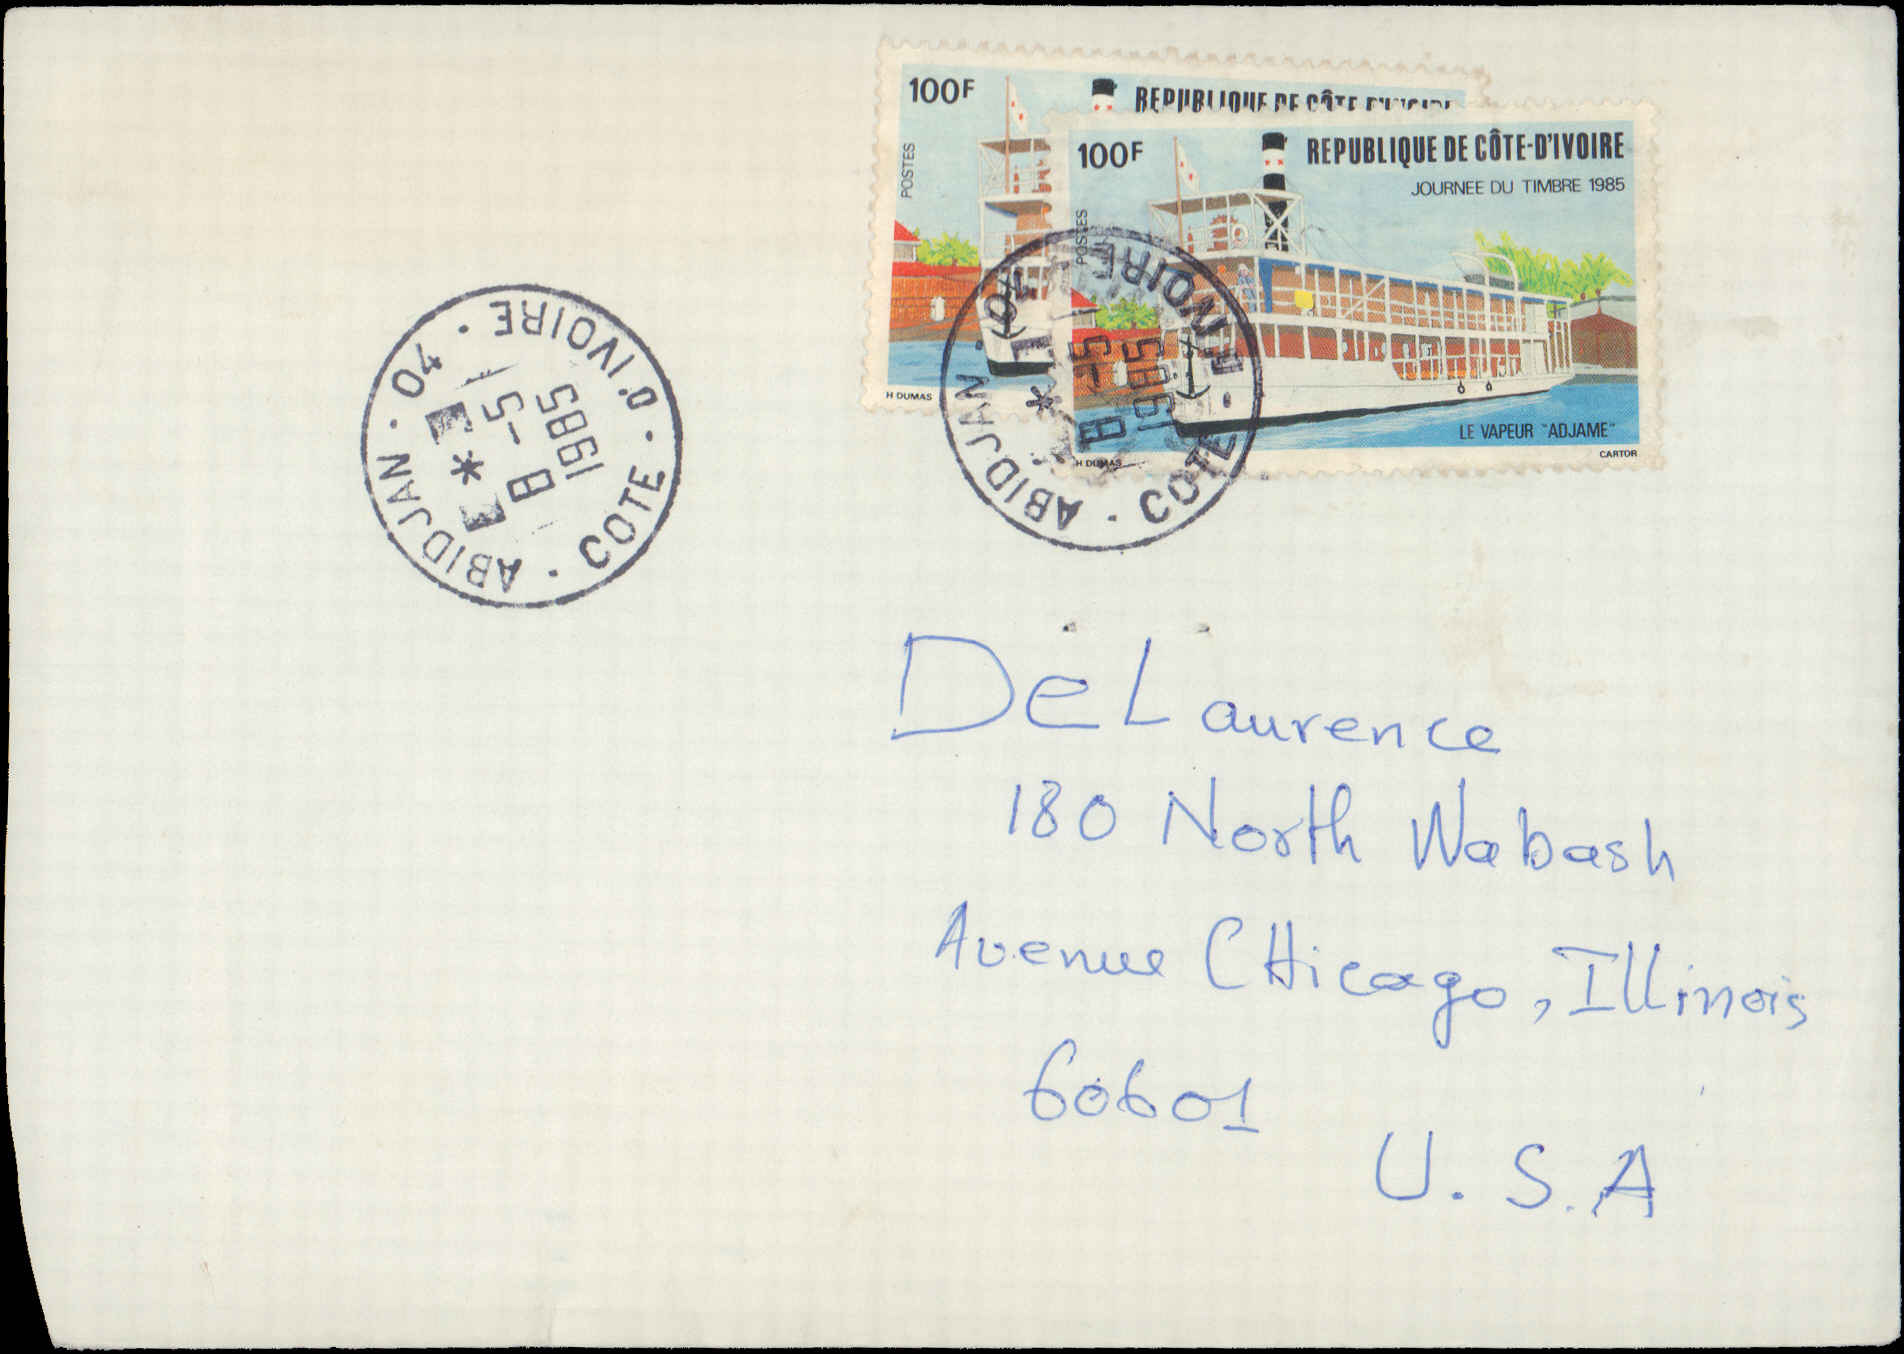 100F
REPUBLIQUE DE CÔTE-D'IVOIRE
POSTES
H DUMAS
100F
REPUBLIQUE DE CÔTE-D'IVOIRE
JOURNEE DU TIMBRE 1985
POSTES
LE VAPEUR "ADJAME"
H DUMAS
CARTOR
ABIDJAN · 04 · COTE · D'IVOIRE ·
8 -5
1985
ABIDJAN · 04 · COTE D'IVOIRE
8 -5
1985
DeLaurence
180 North Wabash
Avenue CHicago, Illinois
60601
U.S.A